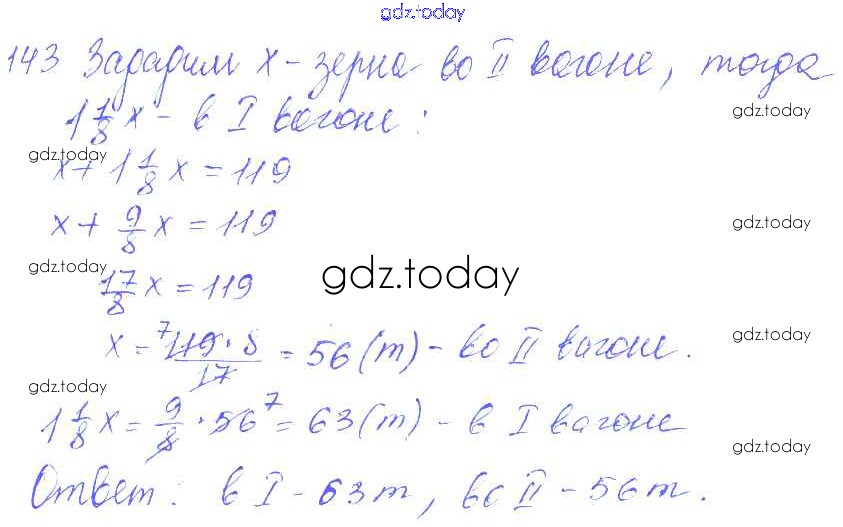 gdz.today
143 Зададим x - зерна во II вагоне, тогда
1 1/8 x - в I вагоне:
gdz.today
gdz.today
x + 1 1/8 x = 119
x + 9/8 x = 119
gdz.today
gdz.today
17/8 x = 119
gdz.today
x = 7 119 · 8 / 17 = 56 (т) - во II вагоне.
gdz.today
gdz.today
1 1/8 x = 9/8 · 56 7 = 63 (т) - в I вагоне
gdz.today
Ответ: в I - 63 т, во II - 56 т.